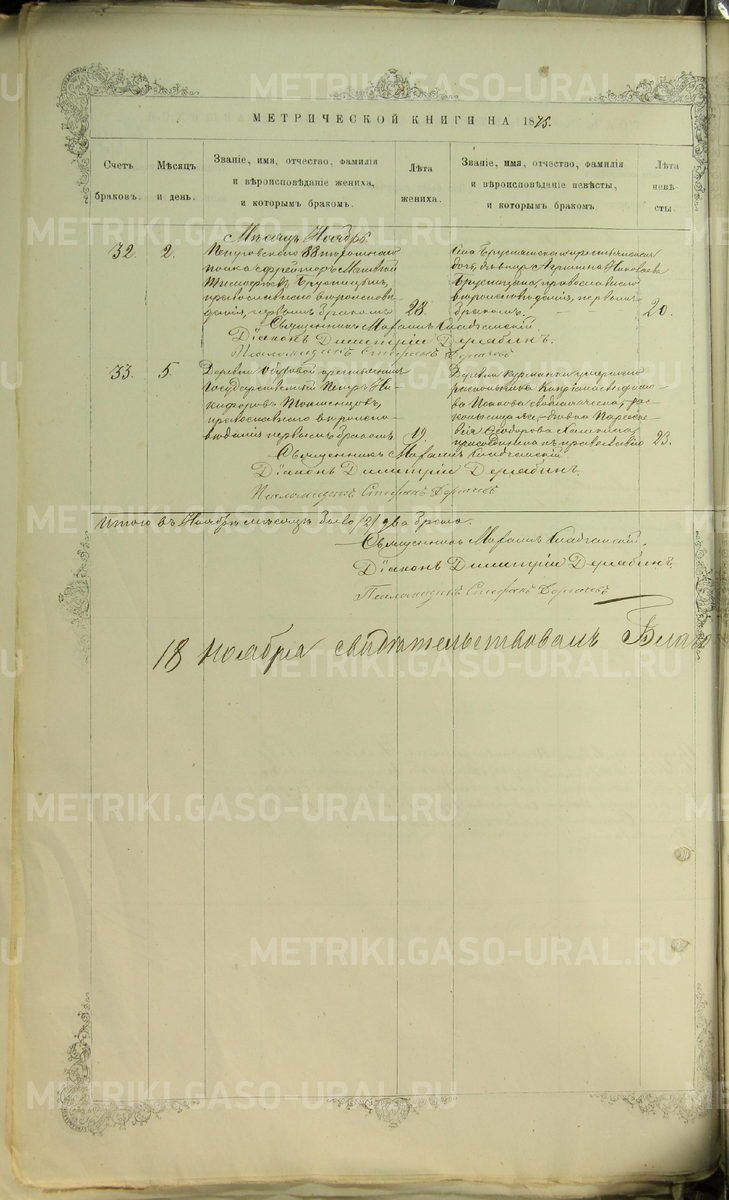 МЕТРИЧЕСКОЙ КНИГИ НА 1875.
Счетъ браковъ.
Мѣсяцъ и день.
Званіе, имя, отчество, фамилія
и вѣроисповѣданіе жениха,
и которымъ бракомъ.
Лѣта жениха.
Званіе, имя, отчество, фамилія
и вѣроисповѣданіе невѣсты,
и которымъ бракомъ.
Лѣта невѣсты.
Мѣсяцъ Ноябрь.
32. 2.
Петровскаго 88 пѣхотнаго
полка ефрейторъ Матвей
Брусницынъ,
православнаго вѣроисповѣ-
данія, первымъ бракомъ
28.
Села Бруснятскаго крестьянская
дочь, дѣвица Агрипина Николаева
Брусницына, православнаго
вѣроисповѣданія, первымъ
бракомъ.
20.
Священникъ
Діаконъ Димитрій Дерябинъ.
Псаломщикъ Стефанъ
33. 5.
Деревни крестьянинъ
Государственный Петръ Ни-
кифоровъ
православнаго вѣроиспо-
вѣданія первымъ бракомъ
19.
Деревни умершаго
раскольника
дѣвица Параске-
вія Ѳеодорова
присоединена къ православію
23.
Священникъ
Діаконъ Димитрій Дерябинъ.
Псаломщикъ Стефанъ
Итого въ Ноябрѣ мѣсяцѣ было /2/ два брака.
Священникъ
Діаконъ Димитрій Дерябинъ.
Псаломщикъ Стефанъ
18 ноября свидѣтельствовалъ Благо
METRIKI.GASO-URAL.RU